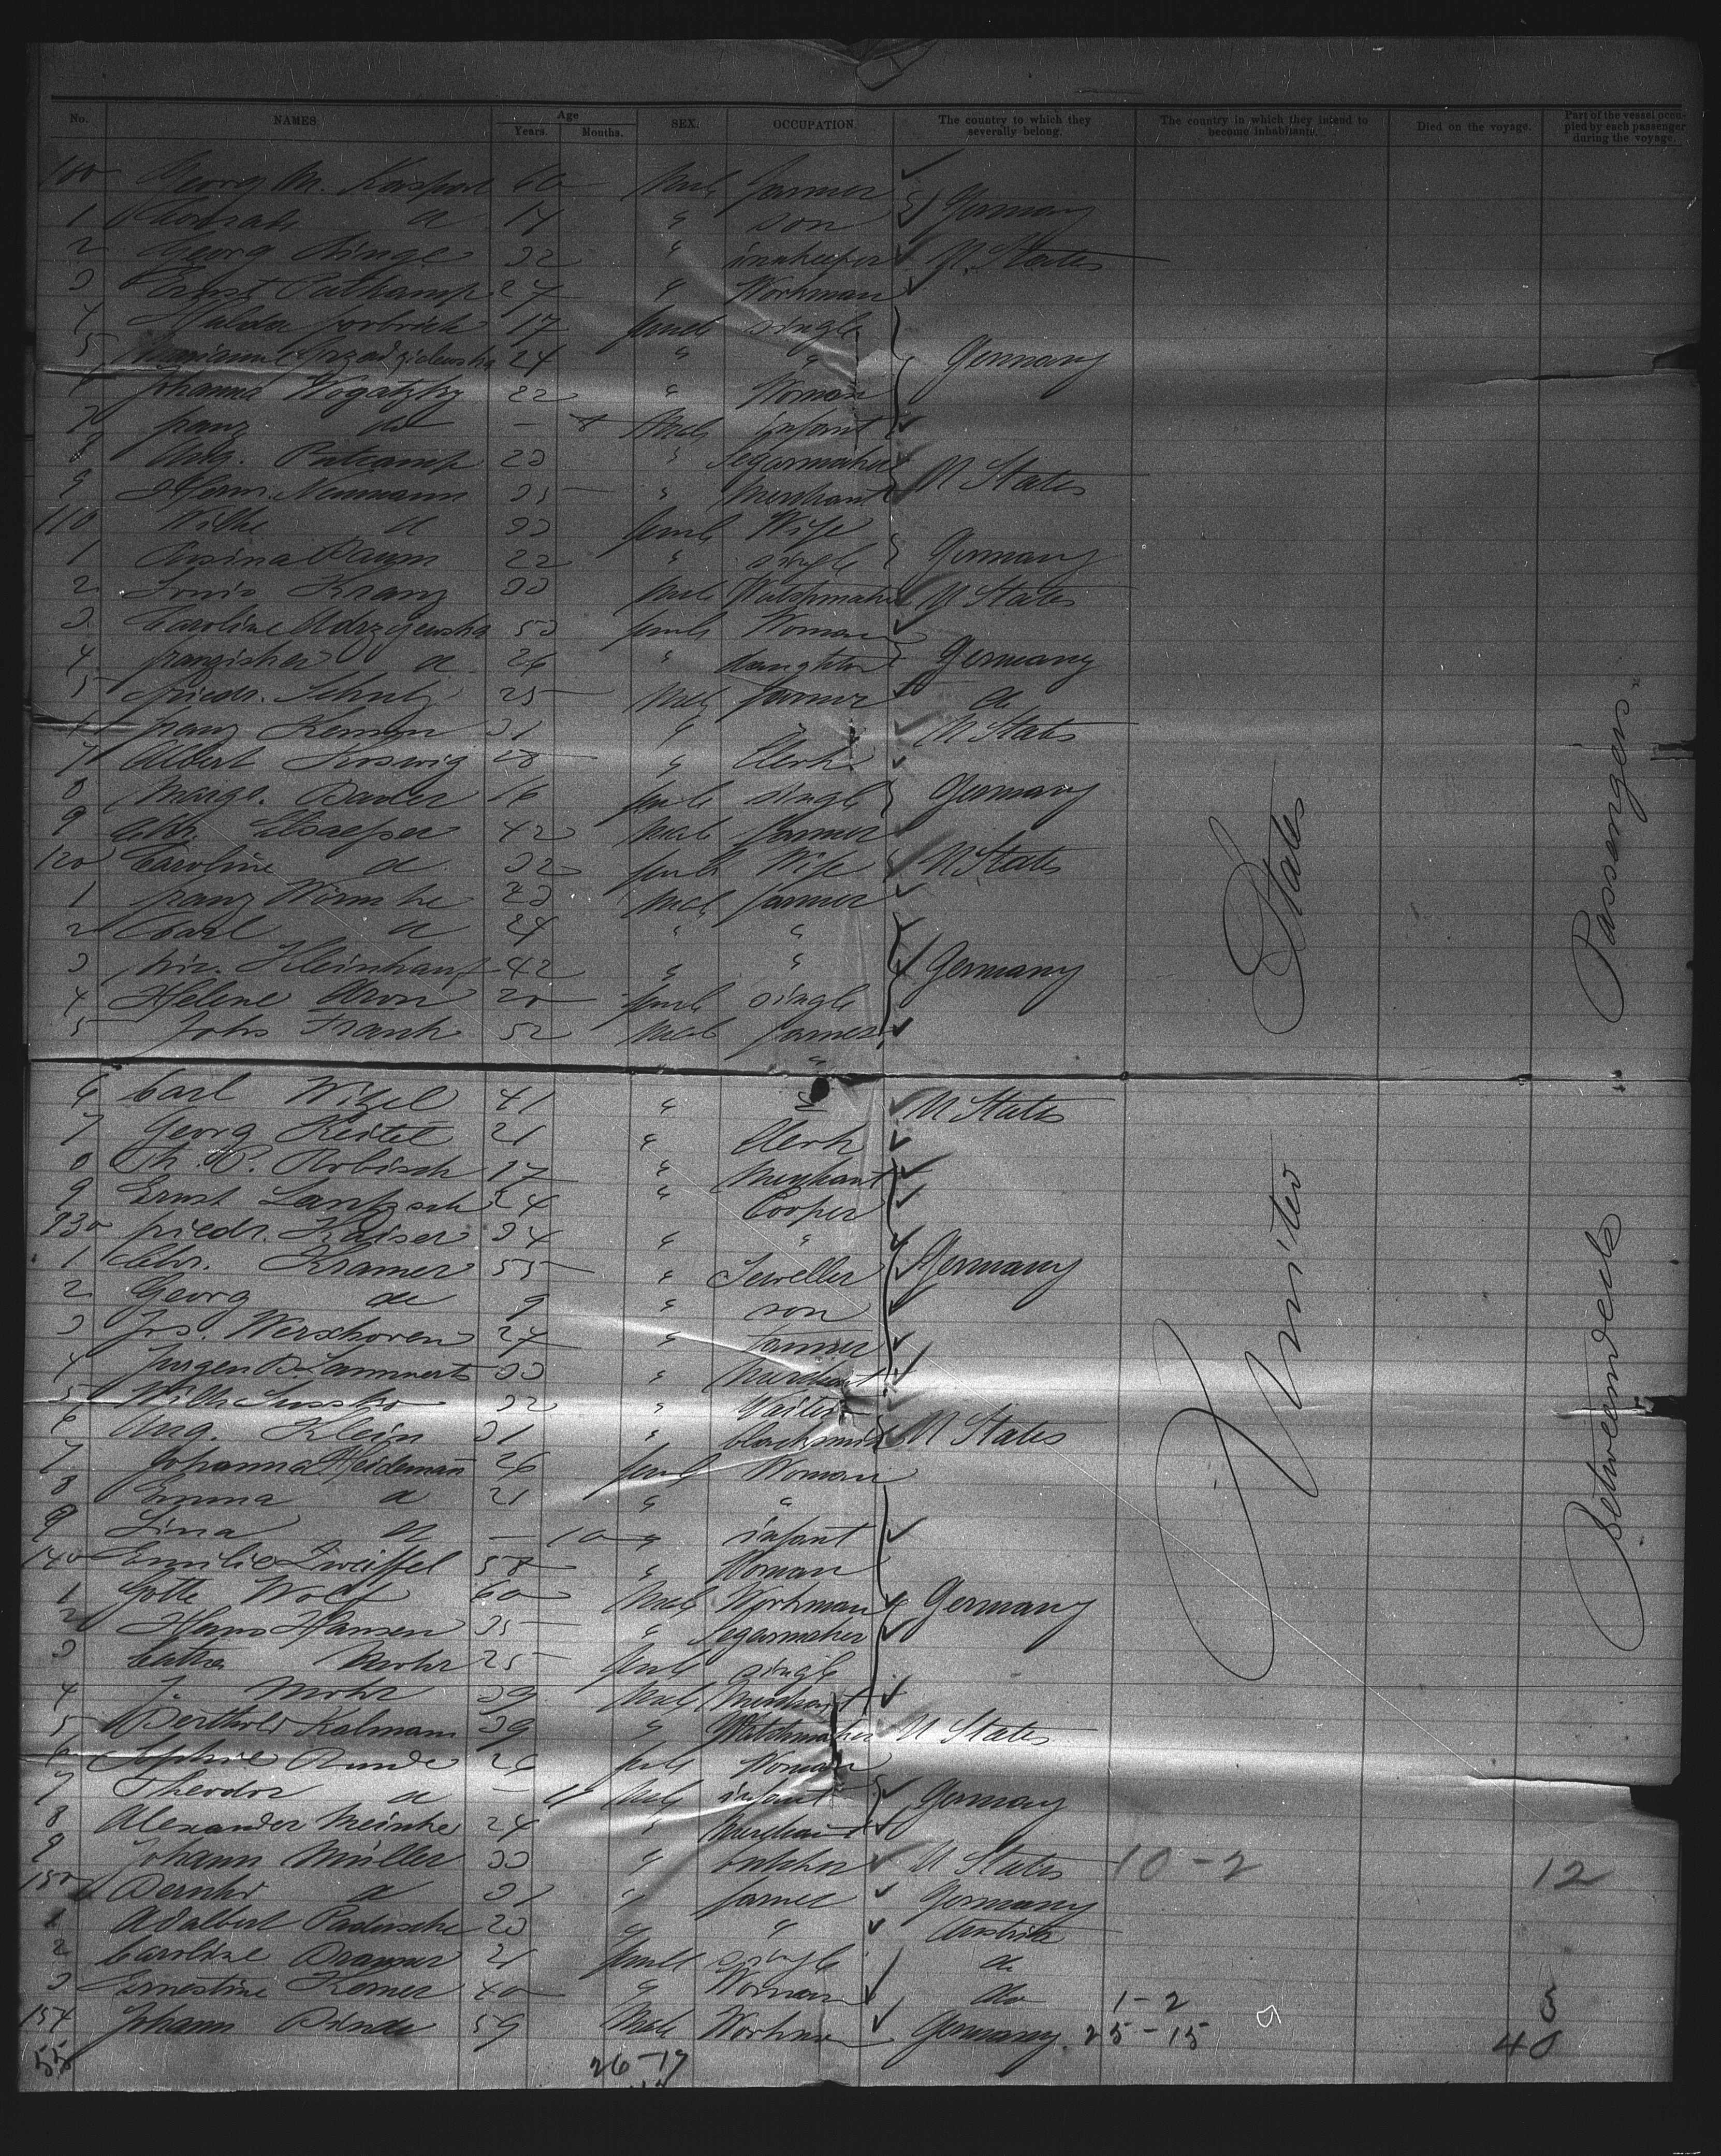 No. NAMES. Age Years. Months. SEX. OCCUPATION. The country to which they severally belong. The country in which they intend to become inhabitants. Died on the voyage. Part of the vessel occupied by each passenger during the voyage.
100 Georg M. 60 Male farmer
1 do 14 " son Germany
2 Georg 32 " innkeeper U. States
3 Ernst 27 " Workman
4 Hulda 17 femal single
5 24 " " Germany
6 Johanna Wogatzky 22 " Woman
7 franz do — 8 Male infant
8 Aug. Putcamp 23 " Segarmaker U States
9 Herm. Neumann 35 " Merchant
110 Wilhe do 33 femal Wife
1 Rosina Baum 22 " single Germany
2 Louis Kranz 33 Male Watchmaker U States
3 Caroline 53 femal Woman
4 do 26 " daughter Germany
5 friedr. Schulz 25 Male farmer do
6 franz 31 " " U States
7 Albert Koswig 28 " Clerk
8 Marga. Bauer 16 femal single Germany
9 Chr. 42 Male farmer
120 Caroline do 32 femal Wife U States
1 franz 23 Male farmer
2 Carl do 24 " "
3 Kleinhauf 42 " " Germany
4 Helene Aron 20 femal single
5 Johs Frank 52 Male farmer
6 Carl Witzel 41 " " U States
7 Georg Keitel 21 " Clerk
8 Robisch 17 " Merchant
9 Ernst 24 " Cooper
930 friedr. Kaiser 34 " "
1 Chr. Kramer 55 " Jeweller Germany
2 Georg do 9 " son
3 Jos. Werxhoven 27 " farmer
4 Jurgen B. Lammerts 33 " Merchant
5 Wilh. 32 " Waiter
6 Aug. Klein 31 " blacksmith U States
7 Johanna Heidemann 26 femal Woman
8 Emma do 21 " "
9 Lina do — 10 " infant
140 Emilie Zweiffel 58 " Woman
1 Gottl Wolf 60 Male Workman Germany
2 Hans Hansen 35 " Segarmaker
3 Cathe Mohr 25 femal single
4 J. Mohr 39 Male Merchant
5 Berthold Kalmann 39 " Watchmaker U States
6 Sophie Runde 26 femal Woman
7 Theodor do — 11 Male infant Germany
8 Alexander Meinke 24 " Merchant
9 Johann Müller 33 " butcher U States 10-2 12
150 Bernhd do 31 " farmer Germany
1 Adalbert 23 " " Austria
2 Caroline 21 femal single do
3 Ernestine Korner 40 " Woman do 1-2 3
154 Johann 59 Male Workman Germany. 25-15 40
55 26-17
United States
Betweendeck Passengers